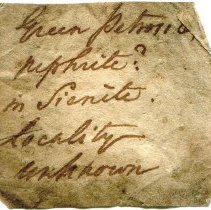 Green
nephrite?
in Sienite.
locality
unknown